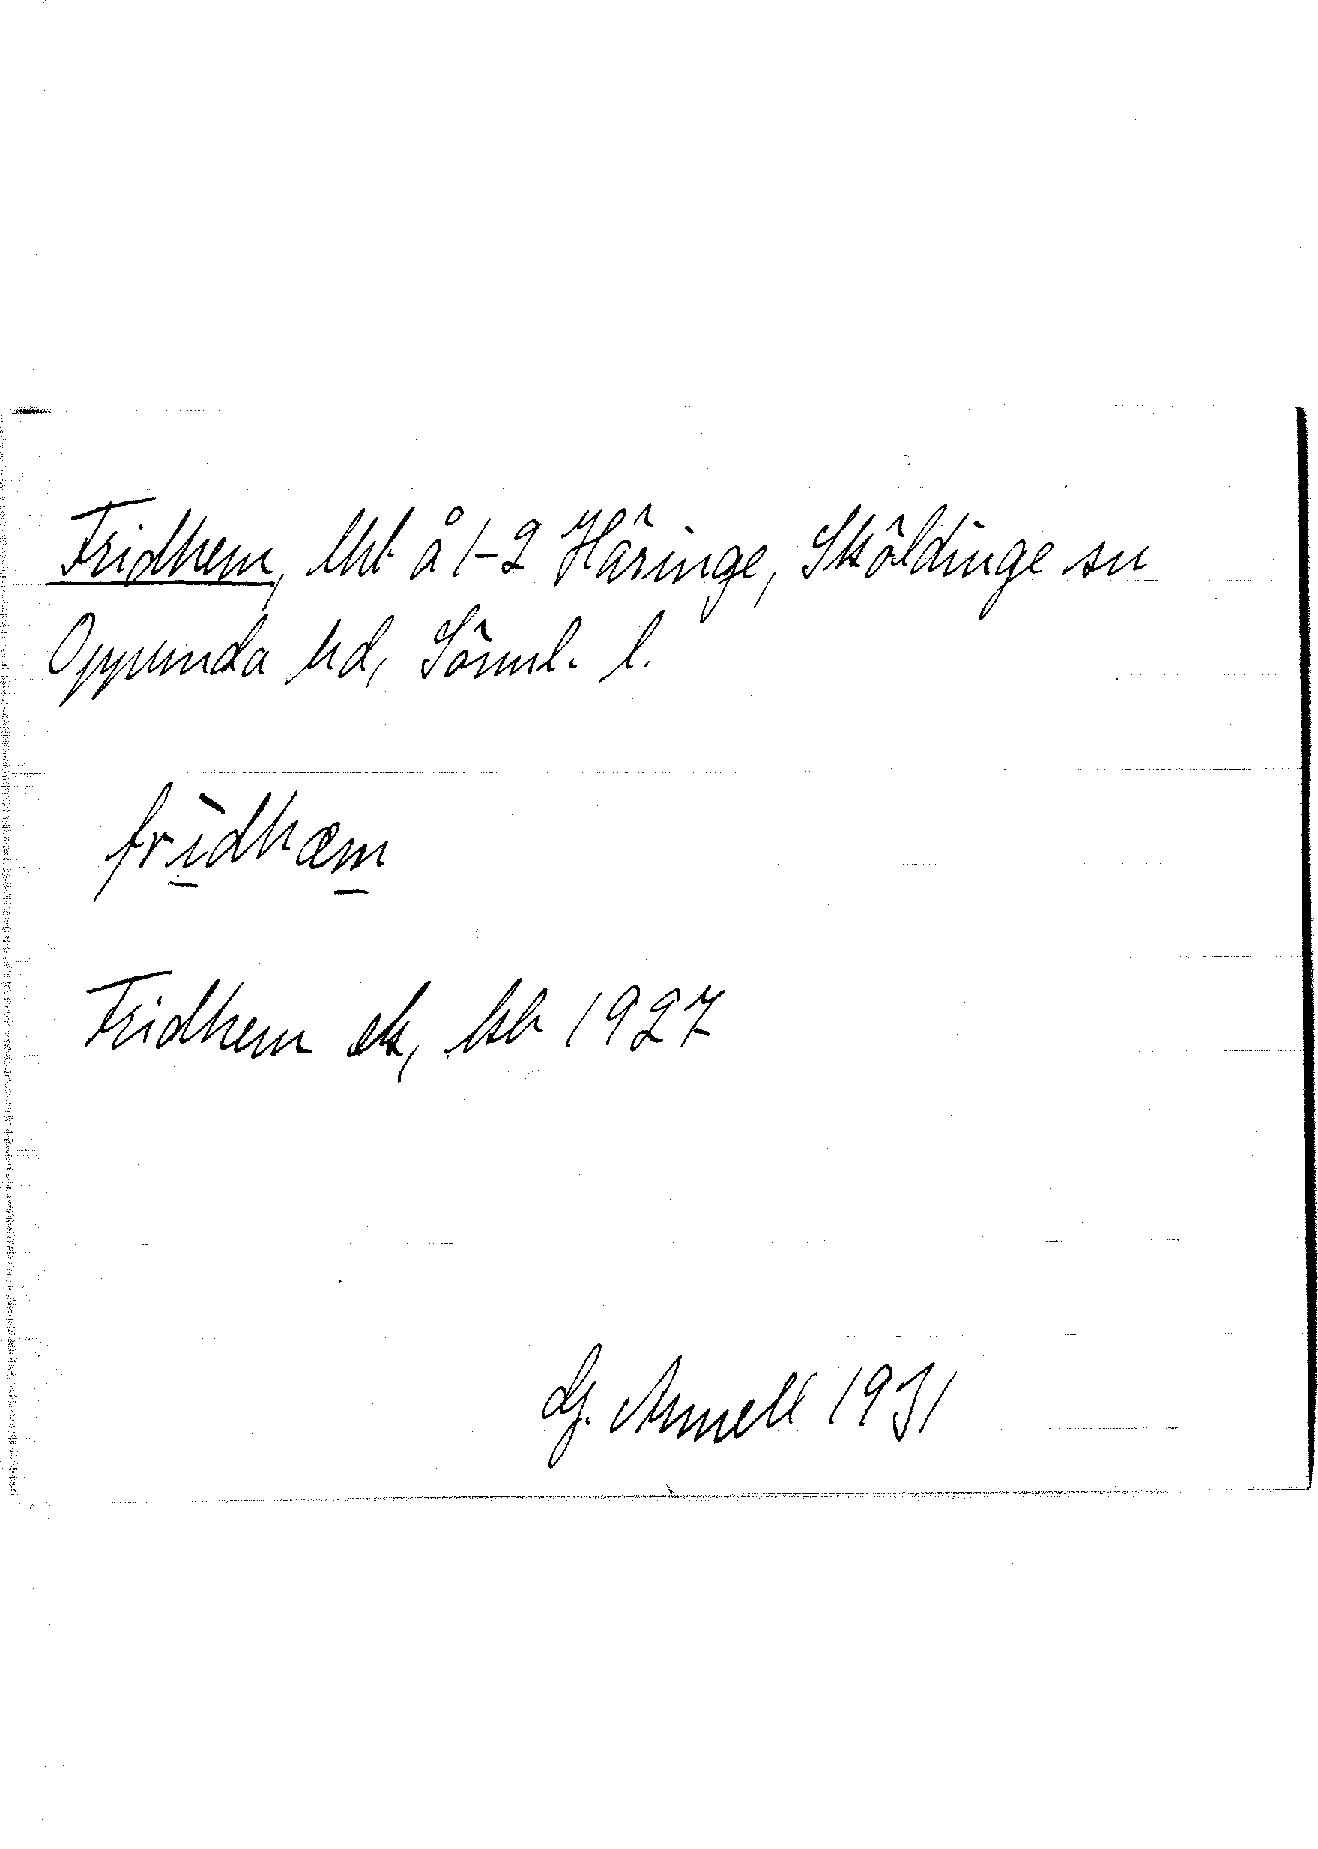 Fridhem, lht å 1-2 Häringe, Sköldinge sn
Oppunda hd, Sörml. l.
frìdhæm
Fridhem ek, kb 1927
G. Arnell 1931